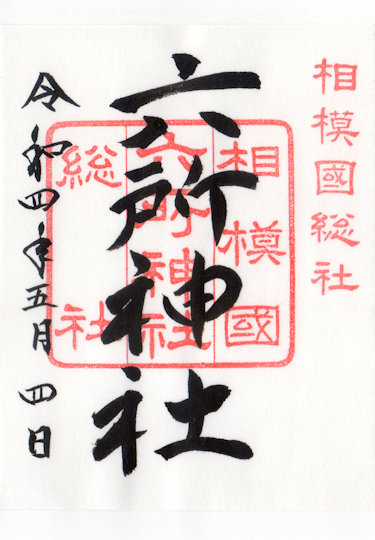 相模國総社
六所神社
相模國
六所神社
総社
令和四年五月四日